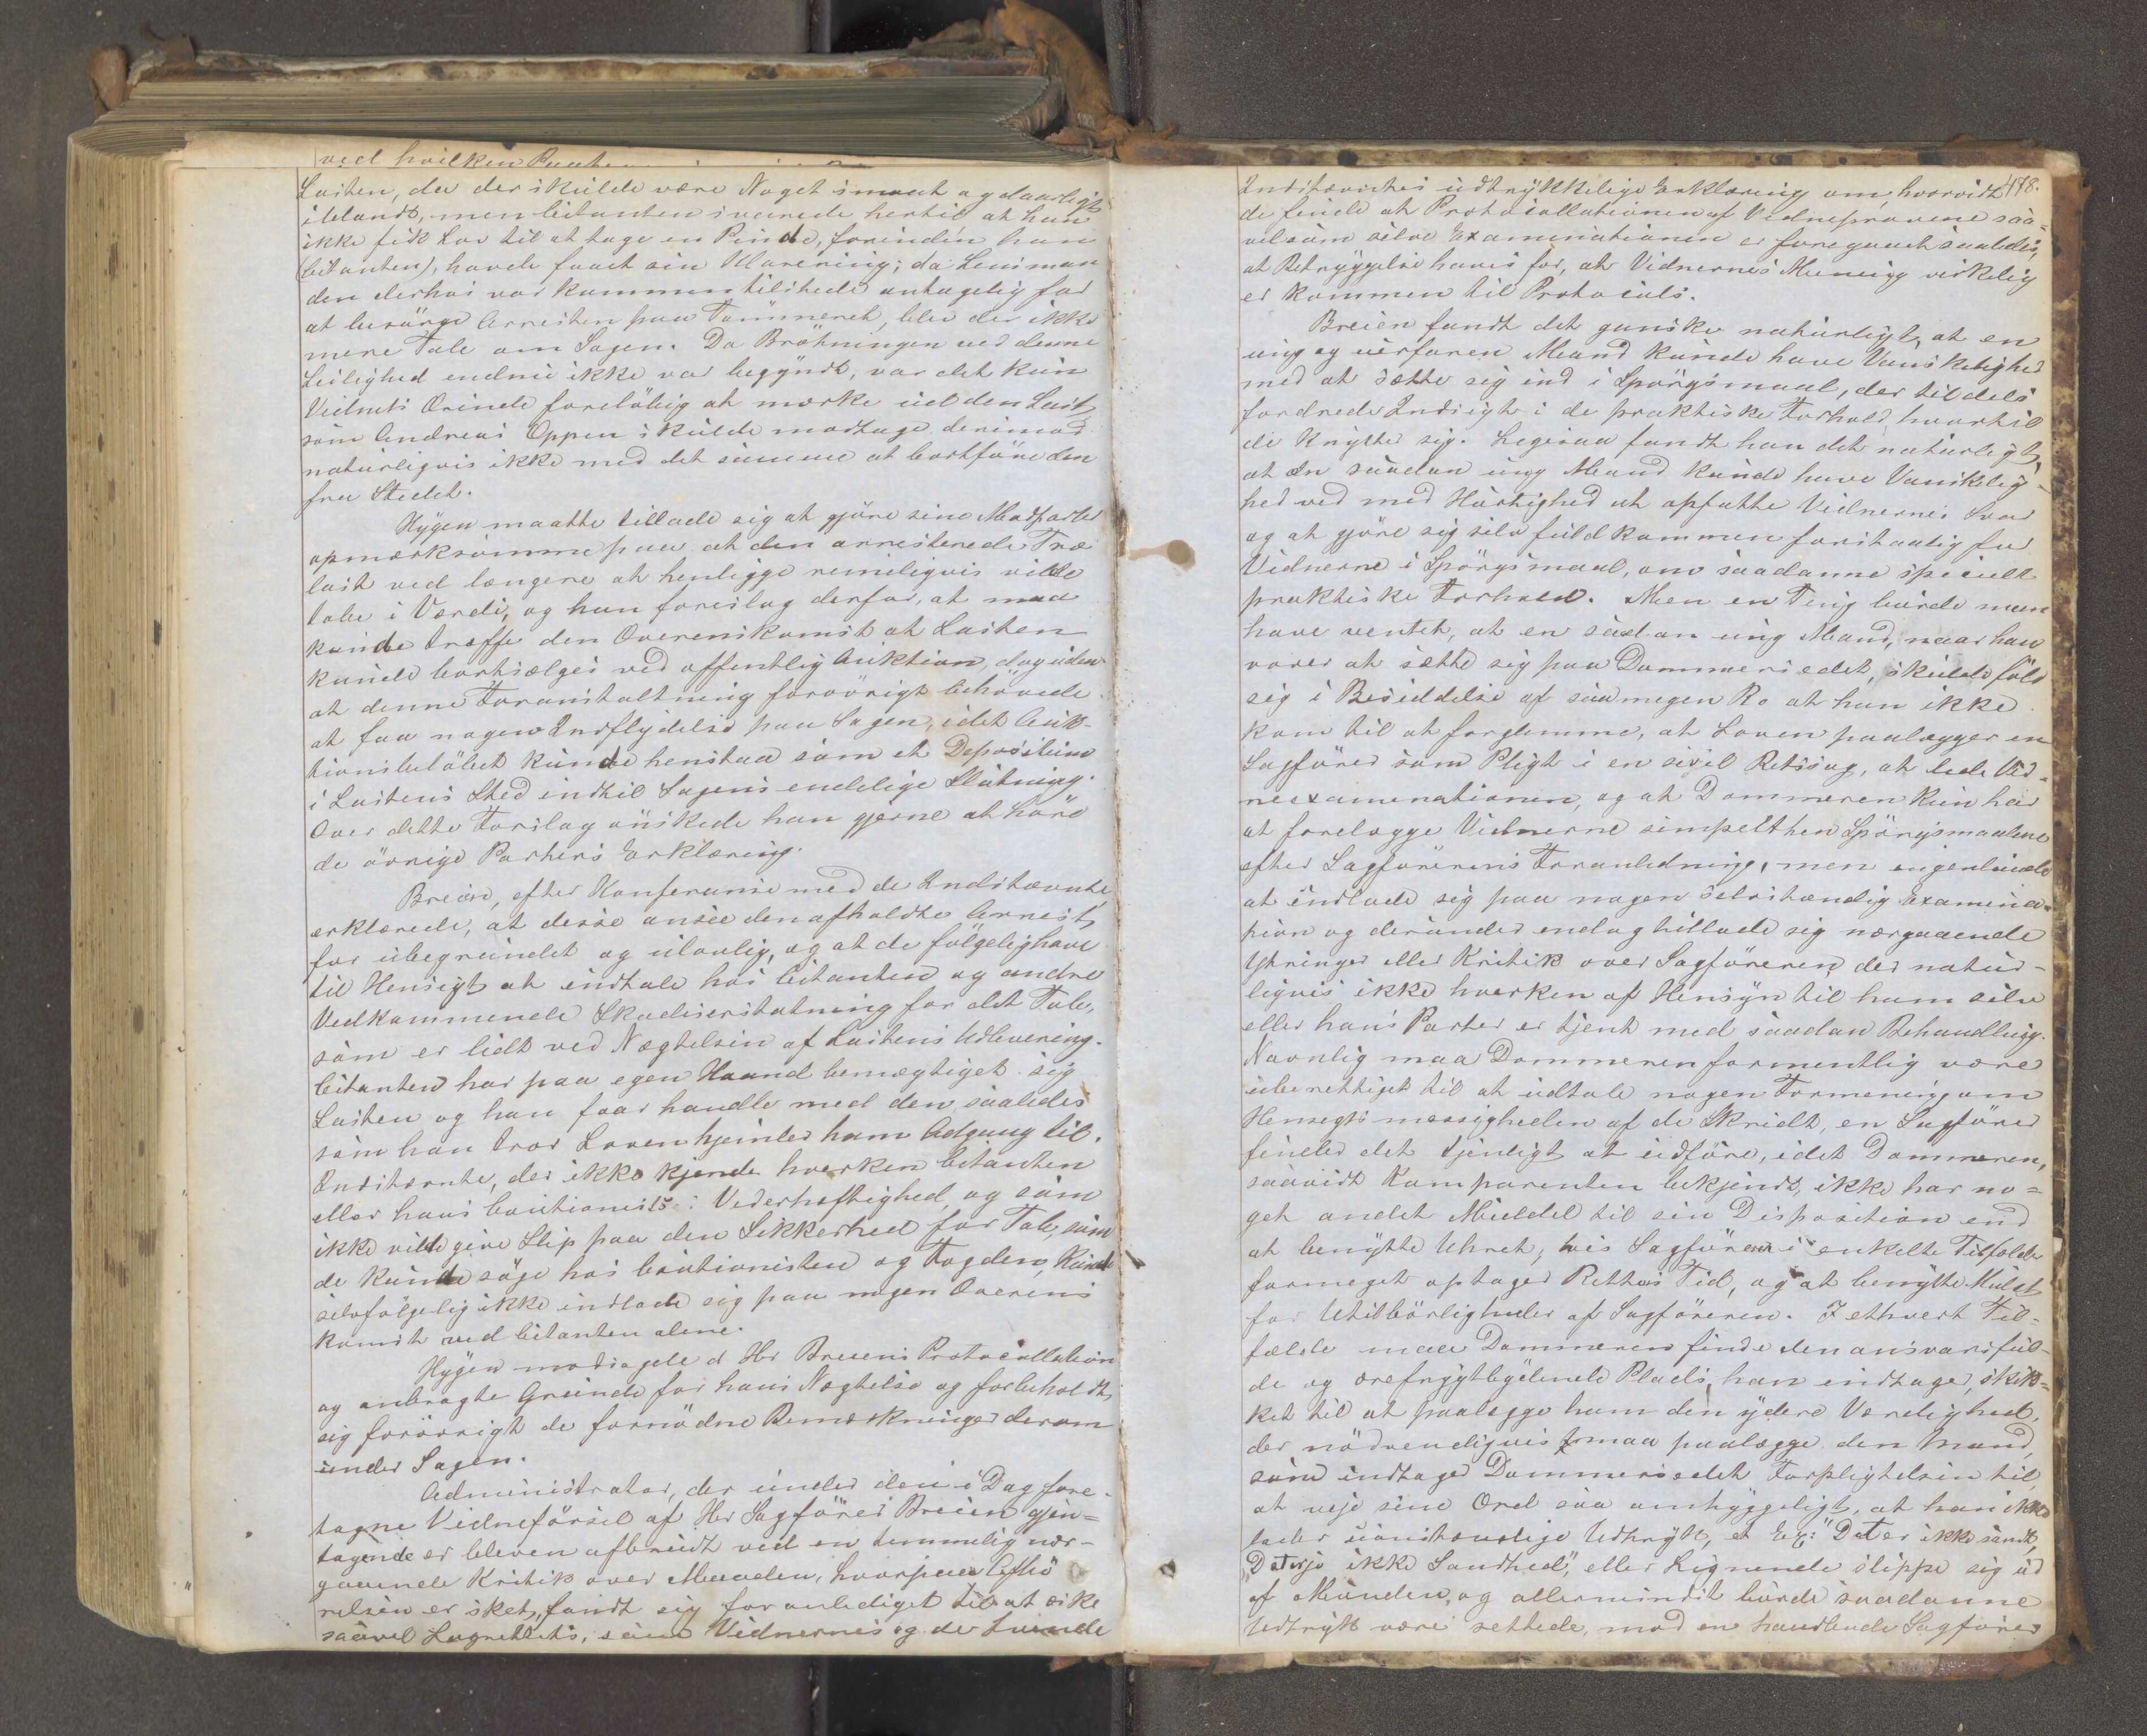 ved hvilken
Lasten, da der skulde være Noget smaat og daarligt
iblandt, men Citanten svarede hertil at han
ikke fik Lov til at tage en Pinde, forinden han
(Citanten), havde faaet sin Klarering; da Lensman
den derhos var kommen tilstede antagelig for
at besörge Arresten paa Tömmeret, blev der ikke
mere Tale om Sagen. Da Bröhningen ved denne
Leilighed endnu ikke var begyndt, var det kun
Vidnets Ærinde foreløbig at mærke ud den Last,
som Andreas Oppen skulde modtage, derimod
naturligvis ikke med det samme at bortföre den
fra Stedet.
Hygen maatte tillade sig at gjöre sine Modparter
opmærksomme paa at den arresterede Træ
last ved længere at henligge rimeligvis vilde
tabe i Værdi, og han foreslog derfor, at man
kunde træffe den Overenskomst at Lasten
kunde bortsælges ved offentlig Auktion, dog uden
at denne Foranstaltning forövrigt behövede
at faa nogen Indflydelse paa Sagen, idet Auk-
tionsbelöbet kunde henstaa som et Depositum
i Lastens Sted indtil Sagens endelige Slutning.
Over dette Forslag önskede han gjerne at höre
de övrige Parters Erklæring.
Breien, efter Konferense med de Indstævnte,
erklærede, at disse ansee den afholdte Arrest,
for ubegrundet og ulovlig, og at de fölgelig have
til Hensigt at indtale hos Citanten og andre
Vedkommende Skadeserstatning for det Tab,
som er lidt ved Nægtelsen af Lastens Udlevering.
Citanten har paa egen Haand bemægtiget sig
Lasten og han faar handle med den saaledes
som han tror Loven hjemler ham Adgang til.
Indstævnte, der ikke kjende hverken Citanten
eller hans Cautionists Vederhæftighed, og som
ikke vilde give Slip paa den Sikkerhed for Tab, som
de kunde söge hos Cautionisten og Fogden, kunde
selvfölgelig ikke indlade sig paa nogen Overens
komst med Citanten alene.
Hygen modsagde d Hr Breiens Protocollation
og anbragte Grunde for hans Nægtelse og forbeholdt
sig forövrigt de fornödne Bemærkninger derom
under Sagen.
Administrator, der under den i Dag fore-
tagne Vidneförsel af Hr Sagförer Breien gjen=
tagende er bleven afbrudt ved en temmelig nær-
gaaende Kritik over Maaden, hvorpaa Afhö
relsen er sket, fandt sig foranlediget til at æske
saavel Lagrettets, som Vidnernes og de
Indstævntes udtrykkelige Erklæring om, hvorvidt 478.
de finde at Protocollationen af Vidneprovene saa=
velsom selve Examinationen er foregaaet saaledes,
at Betryggelse haves for, at Vidnernes Mening virkelig
er kommen til Protocols.
Breien fandt det ganske naturligt, at en
ung og uerfaren Mand kunde have Vanskelighed
med at sætte sig ind i Spörgsmaal, der tildels
fordrede Indsigt i de praktiske Forhold, hvortil
de knytte sig. Ligesaa fandt han det naturligt,
at en saadan ung Mand kunde have Vanskelig-
hed ved med Hurtighed at opfatte Vidnernes Svar
og at gjöre sig selv fuldkommen forstaaelig for
Vidnerne i Spörgsmaal, om saadanne specielt
praktiske Forhold. Men en Ting burde man
have ventet, at en saadan ung Mand, naar han
vover at sætte sig paa Dommersædet, skulde föle
sig i Besiddelse af saamegen Ro at han ikke
kom til at forglemme, at Loven paalægger en
Sagförer som Pligt i en sivil Retssag, at lede Vid-
neexaminationen, og at Dommeren kun har
at forelægge Vidnerne simpelthen Spörgsmaalene
efter Sagförerens Foranledning, men ingenlunde
at indlade sig paa nogen selvstændig Examina-
tion og derunder endog tillade sig nærgaaende
Ytringer eller Kritik over Sagföreren, der natur-
ligvis ikke hverken af Hensyn til ham selv
eller hans Parter er tjent med saadan Behandling.
Navnlig maa Dommeren formentlig være
uberettiget til at udtale nogen Formening om
Hensigtsmæssigheden af de Skridt, en Sagförer
finder det tjenligt at udföre, idet Dommeren,
saavidt Komparenten bekjendt, ikke har no=
get andet Middel til sin Disposition end
at benytte Uhret, hvis Sagföreren i enkelte Tilfælde
formeget optager Rettens Tid, og at benytte Mulct
for Utilbörligheder af Sagföreren. I ethvert Til-
fælde maa Dommeren finde den ansvarsful-
de og ærefrygtbydende Plads, han indtager, skik=
ket til at paalægge ham den ydere Værdighed,
der nödvendigvis maa paalægge den Mand,
som indtager Dommersædet Forpligtelsen til
at veje sine Ord saa omhyggeligt, at han ikke
lader uanstændige Udtryk, et Ex: "Det er ikke sandt,
"Det er jo ikke Sandhed", eller Lignende slippe sig ud
af Munden, og allermindst burde saadanne
Udtryk være rettede, mod en handlende Sagförer